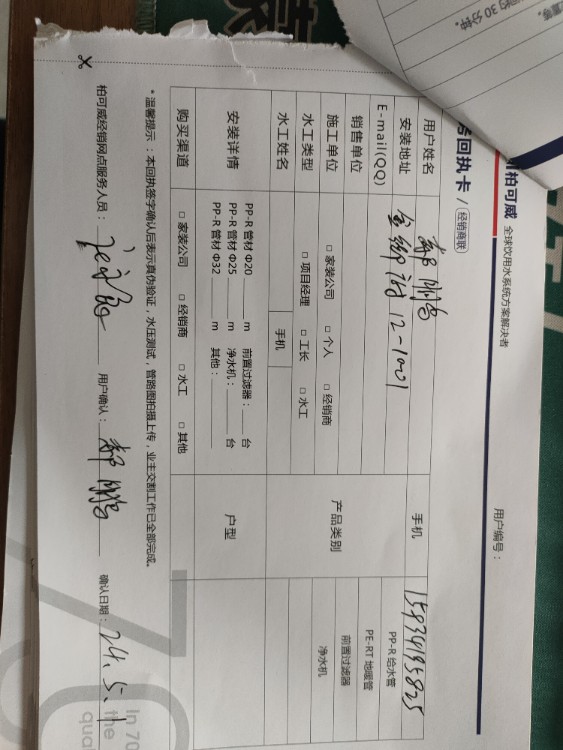 柏可威 全球饮用水系统方案解决者
用户编号：
回执卡 / 经销商联
用户姓名 郝鹏 手机 15934195825
安装地址 12-1001
E-mail(QQ)
销售单位
施工单位 □ 家装公司 □ 个人 □ 经销商
水工类型 □ 项目经理 □ 工长 □ 水工
水工姓名 手机
产品类别
PP-R 给水管
PE-RT 地暖管
前置过滤器
净水机
安装详情
PP-R 管材 Φ20 m 前置过滤器： 台
PP-R 管材 Φ25 m 净水机： 台
PP-R 管材 Φ32 m 其他：
户型
购买渠道 □ 家装公司 □ 经销商 □ 水工 □ 其他
*温馨提示：本回执签字确认后表示真伪验证，水压测试，管路图拍摄上传，业主交割工作已全部完成。
柏可威经销网点服务人员： 用户确认： 郝鹏 确认日期： 24.5.1
30 分钟。
70
In 70
the
qua